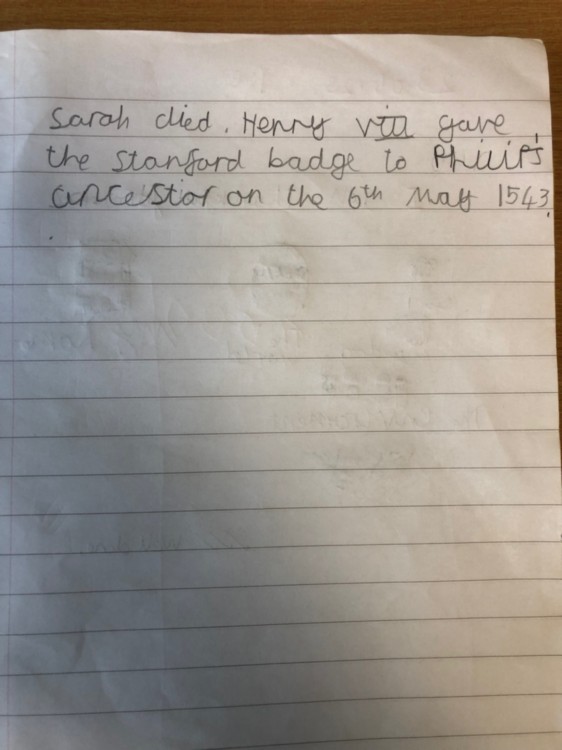 Sarah died. Henry VIII gave
the Stanford badge to Philip's
ancestor on the 6th May 1543.